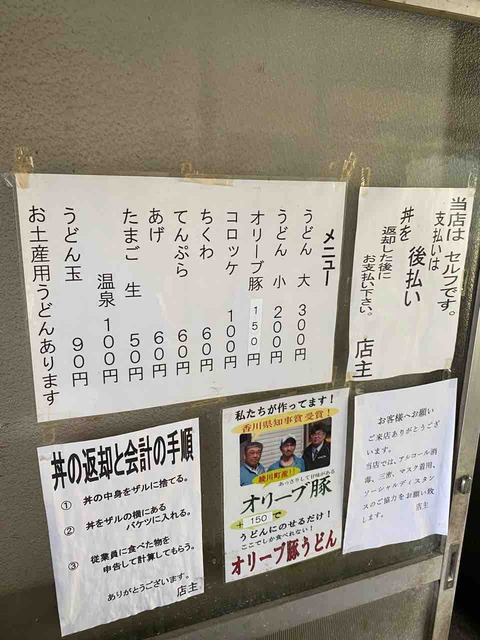 メニュー
うどん 大 300円
うどん 小 200円
オリーブ豚 150円
コロッケ 100円
ちくわ 60円
てんぷら 60円
あげ 60円
たまご 生 50円
温泉 100円
うどん玉 90円
お土産用うどんあります
当店は セルフです。
支払いは
後払い
丼を 返却した後に
お支払い下さい。
店主
丼の返却と会計の手順
① 丼の中身をザルに捨てる。
② 丼をザルの横にある
バケツに入れる。
③ 従業員に食べた物を
申告して計算してもらう。
ありがとうございます。
店主
私たちが作ってます!
香川県知事賞受賞!
綾川町産!!
あっさりして甘味がある
オリーブ豚
+150で
うどんにのせるだけ!
ここでしか食べれない!
オリーブ豚うどん
お客様へお願い
ご来店ありがとうござ
います。
当店では、アルコール消
毒、三密、マスク着用、
ソーシャルディスタン
スのご協力をお願い致
します。
店主